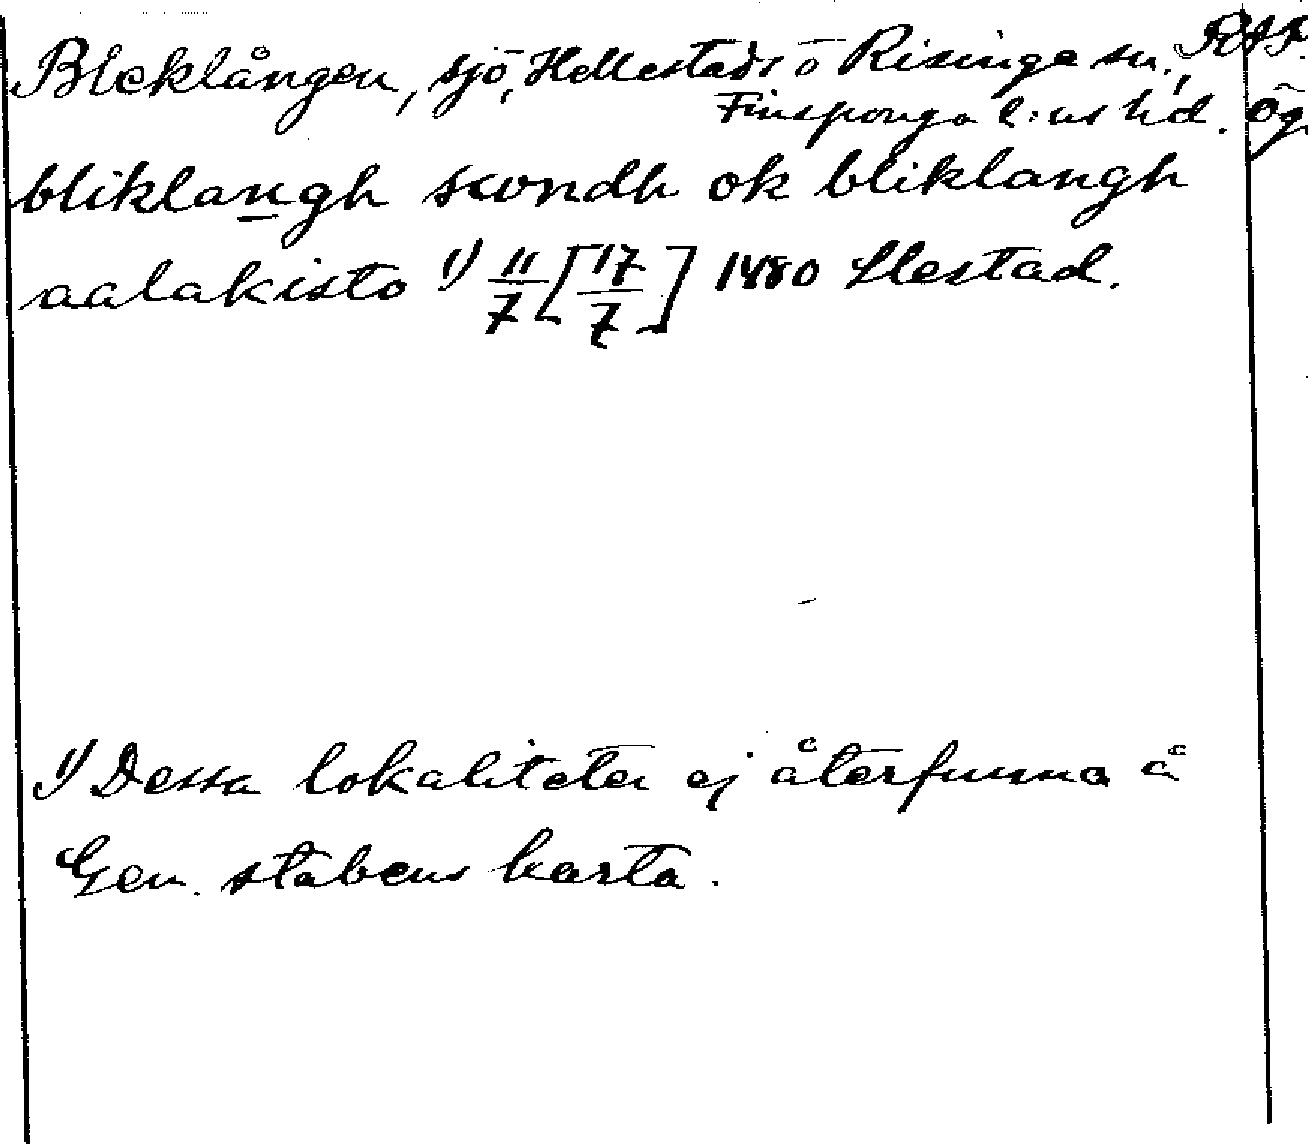 Bleklången, sjö, Hellestads o Risinge sn., RAP.
Finsponga l:ns hd. Ög.
bliklangh swndh ok bliklangh
aalakisto 1) 11/7 [17/7] 1480 Llestad.
1) Dessa lokaliteter ej återfunna å
Gen. stabens karta.